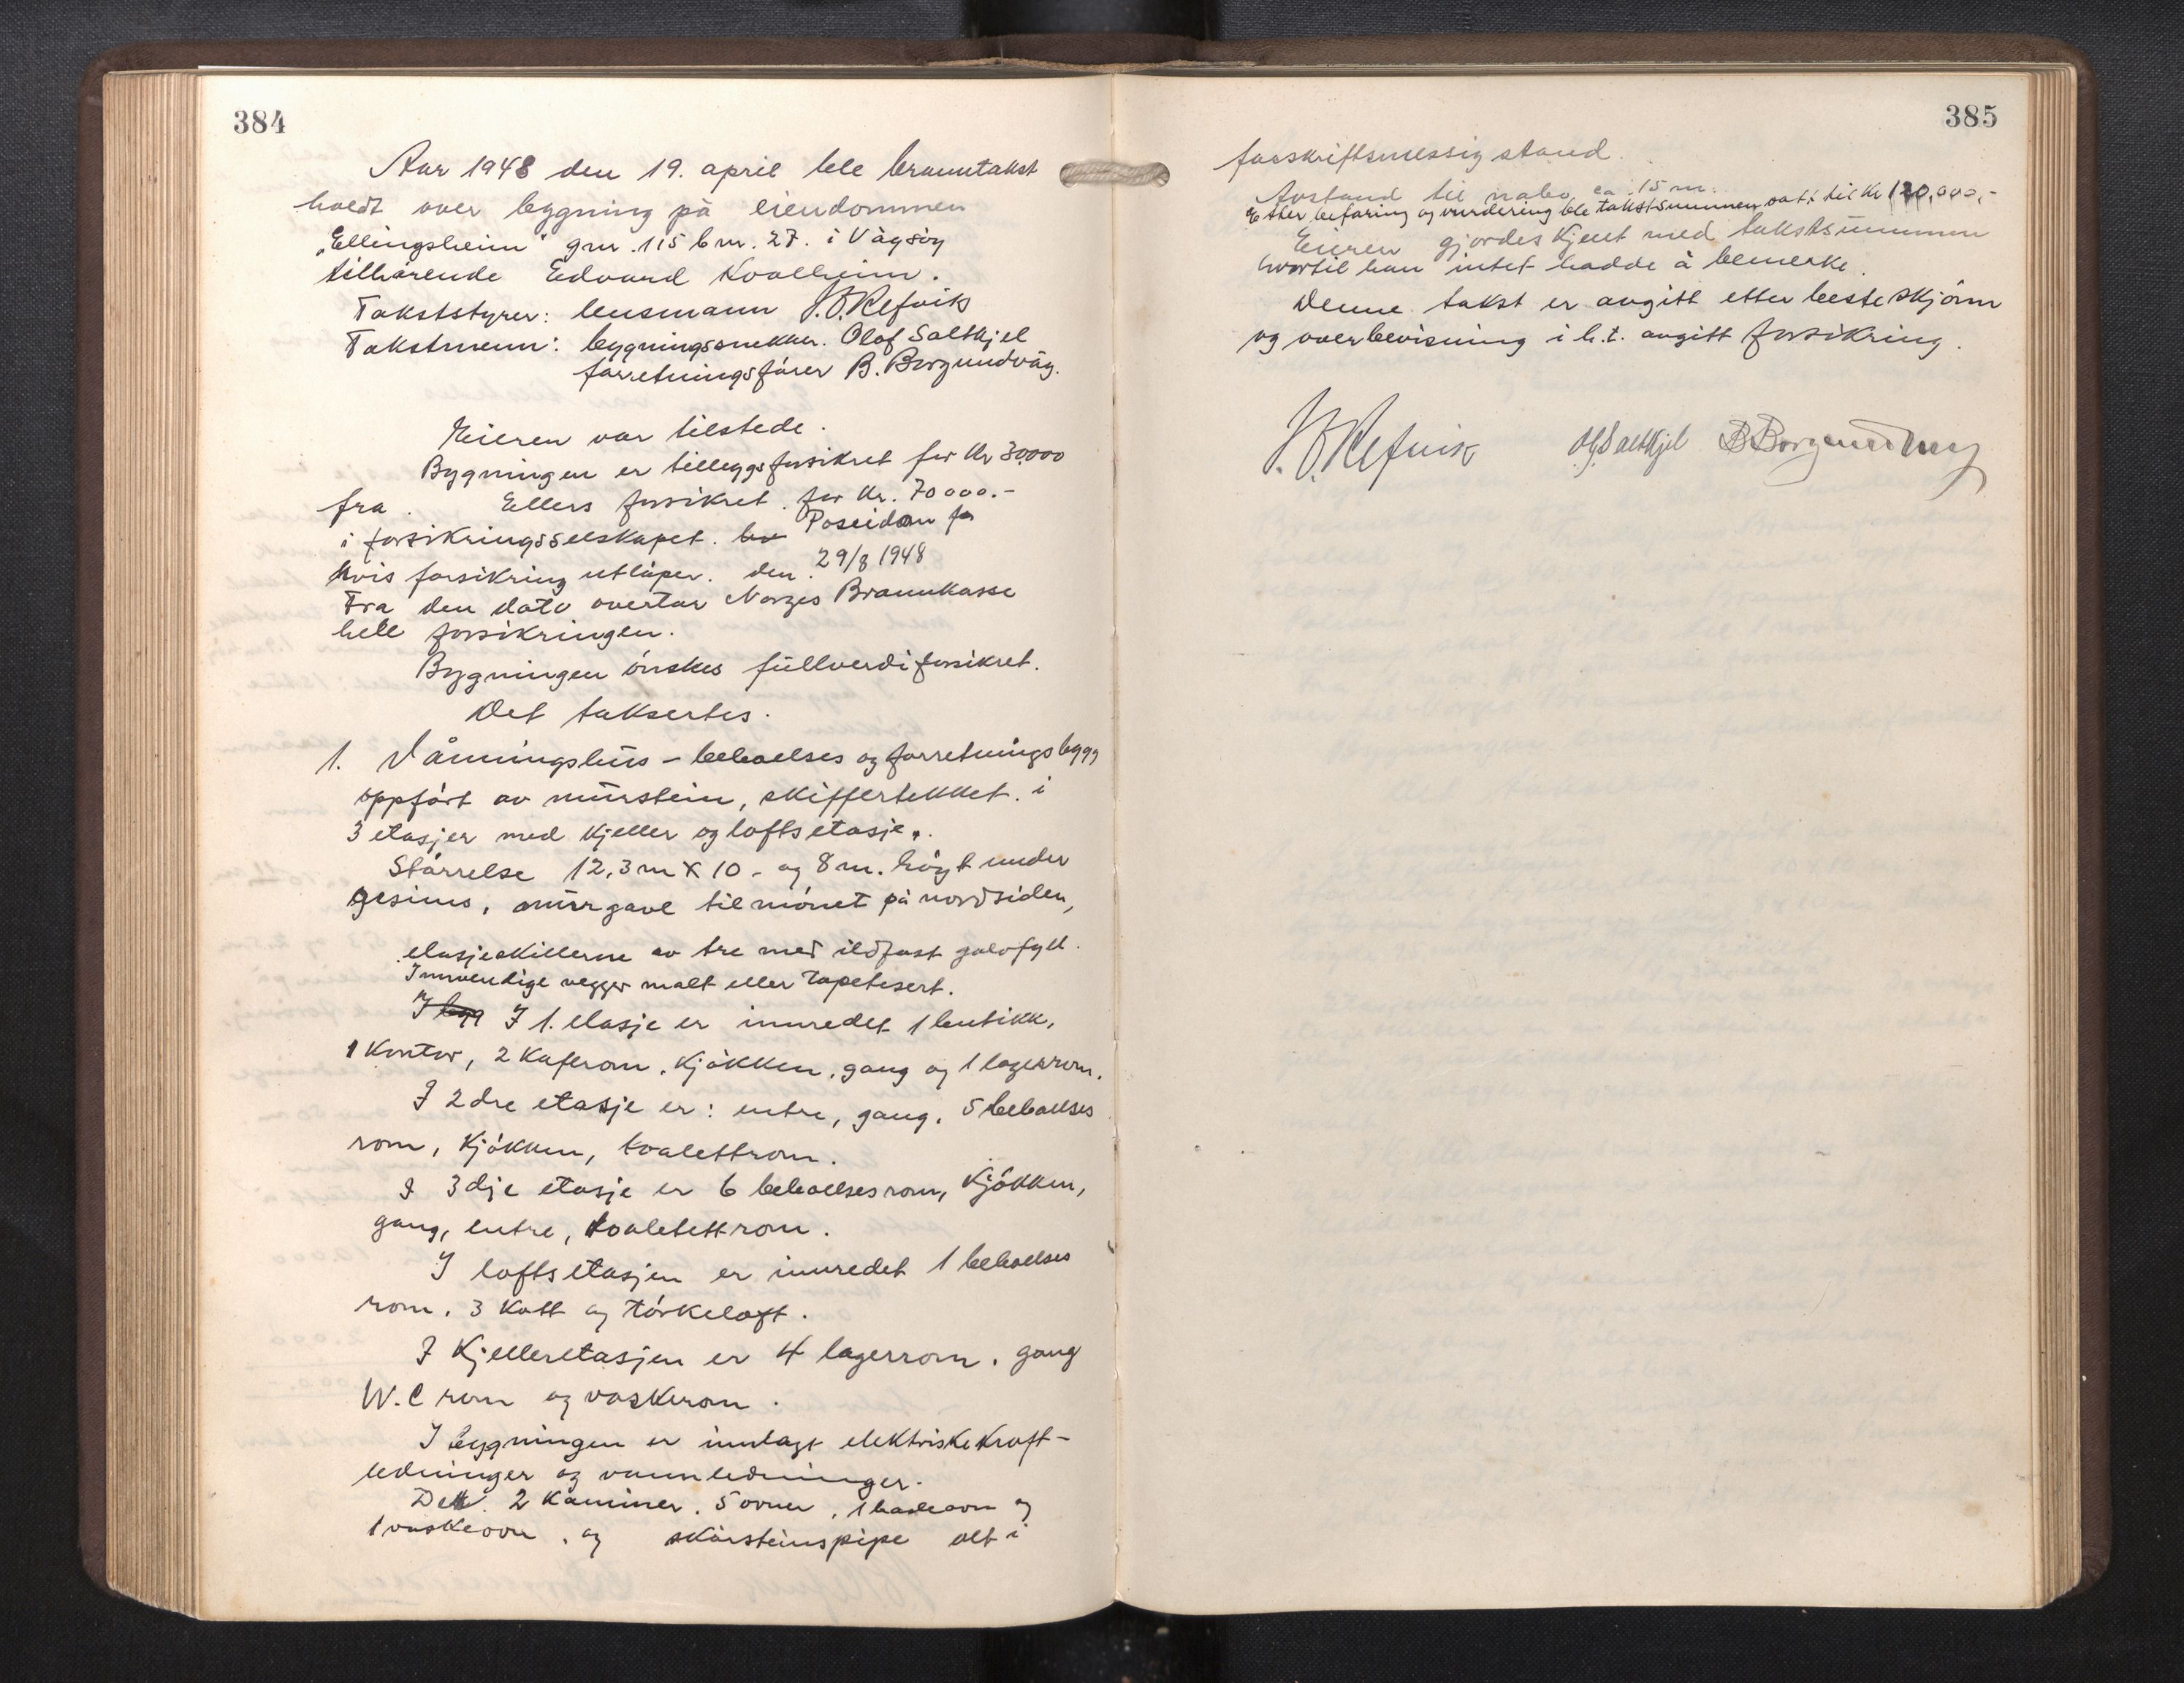 384
Aar 1948 den 19. april ble branntakst
holdt over bygning på eiendommen
"Ellingsheim" gnr. 115 bnr. 27. i Vågsøy
tilhørende Edvard Kvalheim.
Takststyrer: lensmann J.O. Refvik
Takstmenn: bygningssnekker. Olof Saltkjel
forretningsfører B. Borgundvåg.
Eieren var tilstede.
Bygningen er tilleggsforsikret for kr 30000
fra. Ellers forsikret for kr. 70000.-
i forsikringsselskapet. Poseidon for
hvis forsikring utløper. den 29/8 1948
Fra den dato overtar Norges Brannkasse
hele forsikringen.
Bygningen ønskes fullverdiforsikret.
Det taksertes.
1. Våningshus - beboelses og forretningsbygg
oppført av murstein, skiffertekket. i
3 etasjer med kjeller og loftsetasje.
Størrelse 12,3 m x 10 - og 8 m. høgt under
gesims, murgavl til mønet på nordsiden,
etasjeskillerne av tre med ildfast golvfyll.
Innvendige vegger malt eller tapetsert.
I bygg I 1. etasje er innredet 1 butikk,
1 kontor, 2 kaferom, kjøkken, gang og 1 lagerrom.
I 2dre etasje er: entre, gang, 5 beboelses
rom, kjøkken, toalettrom.
I 3dje etasje er 6 beboelsesrom, kjøkken,
gang, entre, toalettettrom.
I loftsetasjen er innredet 1 beboelses
rom, 3 kott og tørkeloft.
I kjelleretasjen er 4 lagerrom, gang
W.C rom og vaskerom.
I bygningen er innlagt elektriske kraft-
ledninger og vannledninger.
Dett. 2 kaminer. 5 ovner, 1 badeovn og
1 vaskeovn, og skorsteinspipe alt i
385
forskriftsmessig stand.
Avstand til nabo ca 15 m.
Etter befaring og vurdering ble takstsummen satt til kr 120,000,-
Eieren gjordes kjent med takstsummen
hvortil han intet hadde å bemerke.
Denne takst er avgitt etter beste skjønn
og overbevisning i h.t. avgitt forsikring.
J.O. Refvik O. Saltkjel B Borgundvåg